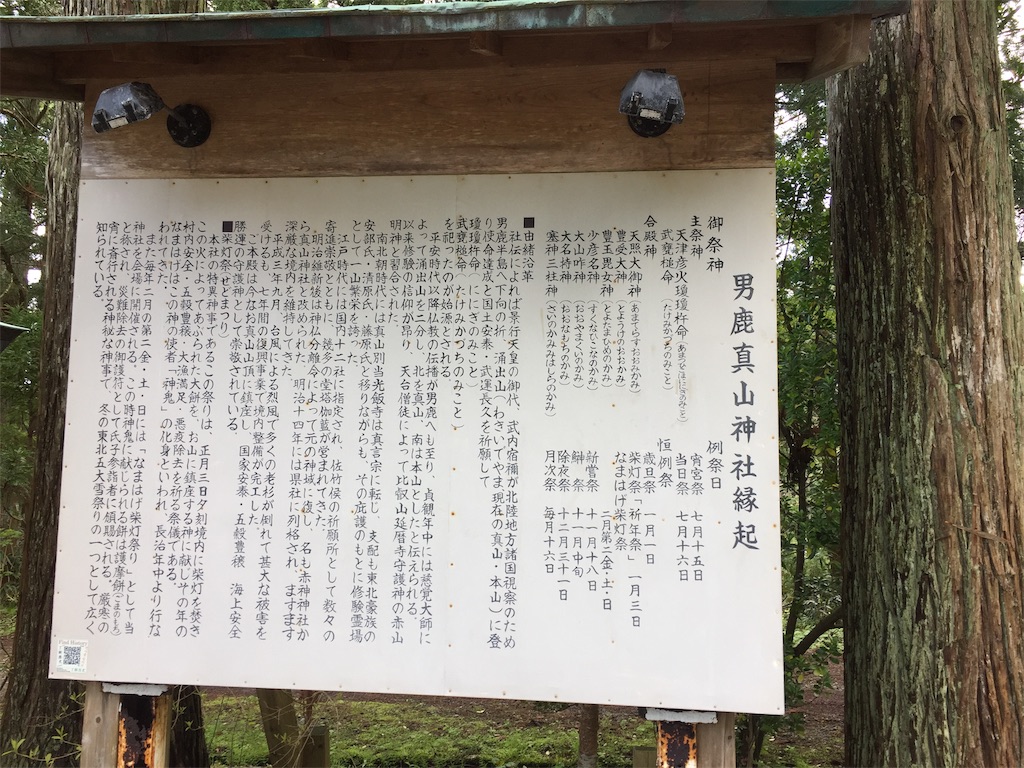 男鹿真山神社縁起
御祭神
主祭神
天津彦火瓊瓊杵命（あまつひこほににぎのみこと）
武甕槌命（たけみかづちのみこと）
合殿神
天照大御神（あまてらすおおみかみ）
豊受大神（とようけのおおかみ）
豊玉毘売神（とよたまひめのかみ）
少彦名神（すくなひこなのかみ）
大山咋神（おおやまくいのかみ）
大名持神（おおなもちのかみ）
塞神三柱神（さいのかみみはしらのかみ）
例祭日
宵宮祭　七月十五日
当日祭　七月十六日
恒例祭
歳旦祭　一月一日
柴灯祭「祈年祭」　一月三日
なまはげ柴灯祭
二月第二金・土・日
新嘗祭　十一月十八日
鰰祭　十一月中旬
除夜祭　十二月三十一日
月次祭　毎月十六日
■由緒沿革
社伝によれば景行天皇の御代、武内宿禰が北陸地方諸国視察のため
男鹿半島へ下向の折、涌出山（わきいでやま・現在の真山・本山）に登
り使命達成と国土安泰・武運長久を祈願して
瓊瓊杵命（ににぎのみこと）
武甕槌命（たけみかづちのみこと）
を祀ったのが始源とされる
平安時代以降仏教の伝播が男鹿へも至り、貞観年中には慈覚大師に
よって涌出山を二分し、北を真山、南は本山としたと伝えられる。
以来修験の信仰が昂り、天台僧徒によって比叡山延暦寺守護神の赤山
明神と習合された。
南北朝時代には真山別当光飯寺は真言宗に転し、支配も東北豪族の
安部氏、清原氏、藤原氏と移りながらも、その庇護のもとに修験霊場
として一山繁栄を誇った。
江戸時代には国内十二社に指定され、佐竹侯の祈願所として数々の
寄進崇敬とともに、幾多の堂塔伽藍が営まれてきた。
明治維新後は神仏分離令によって元の神域に復し、名も赤神神社か
ら真山神社と改められた。明治十四年には県社に列格され、ますます
深厳な境を維持してきた。
平成三年九月、台風による烈風で多くの老杉が倒れて甚大な被害を
受けるも、七年間の復興事業で境内整備が完工した。
ご本殿は今なお真山山頂に鎮座し、国家安泰・五穀豊穣　海上安全
勝運の守護神として崇敬されている。
■柴灯祭（せどまつり）
本社の特異神事であるこの祭りは、正月三日夕刻境内に柴灯を焚き
この火によってあぶられた大餅を、お山に鎮座する神に献じ、その年の
村内安全・五穀豊穣・大漁満足・悪疫除去を祈る祭儀である。
なまはげはこの神の使者「神鬼」の化身といわれ、長治年中より行な
われてきた。
また毎年二月の第二金・土・日には「なまはげ柴灯祭り」として当
神社を会場に開催される。この時神鬼に献じられる餅は護摩餅（ごまのもち）
と称され、災難除去の御護符として氏子参詣者に頒賜される。厳寒の
宵に斎行される神秘な神事で、冬の東北五大雪祭りの一つとして広く
知られている。